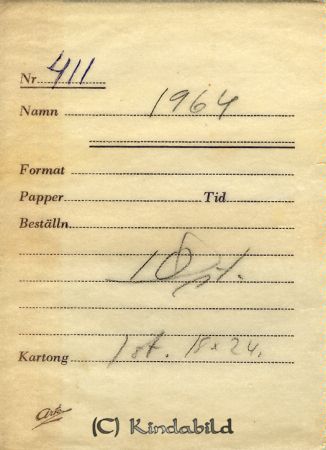 Nr 411
Namn 1964
Format
Papper Tid
Beställn.
10 st.
Kartong 1 st. 18x24.
Ark
(C) Kindabild